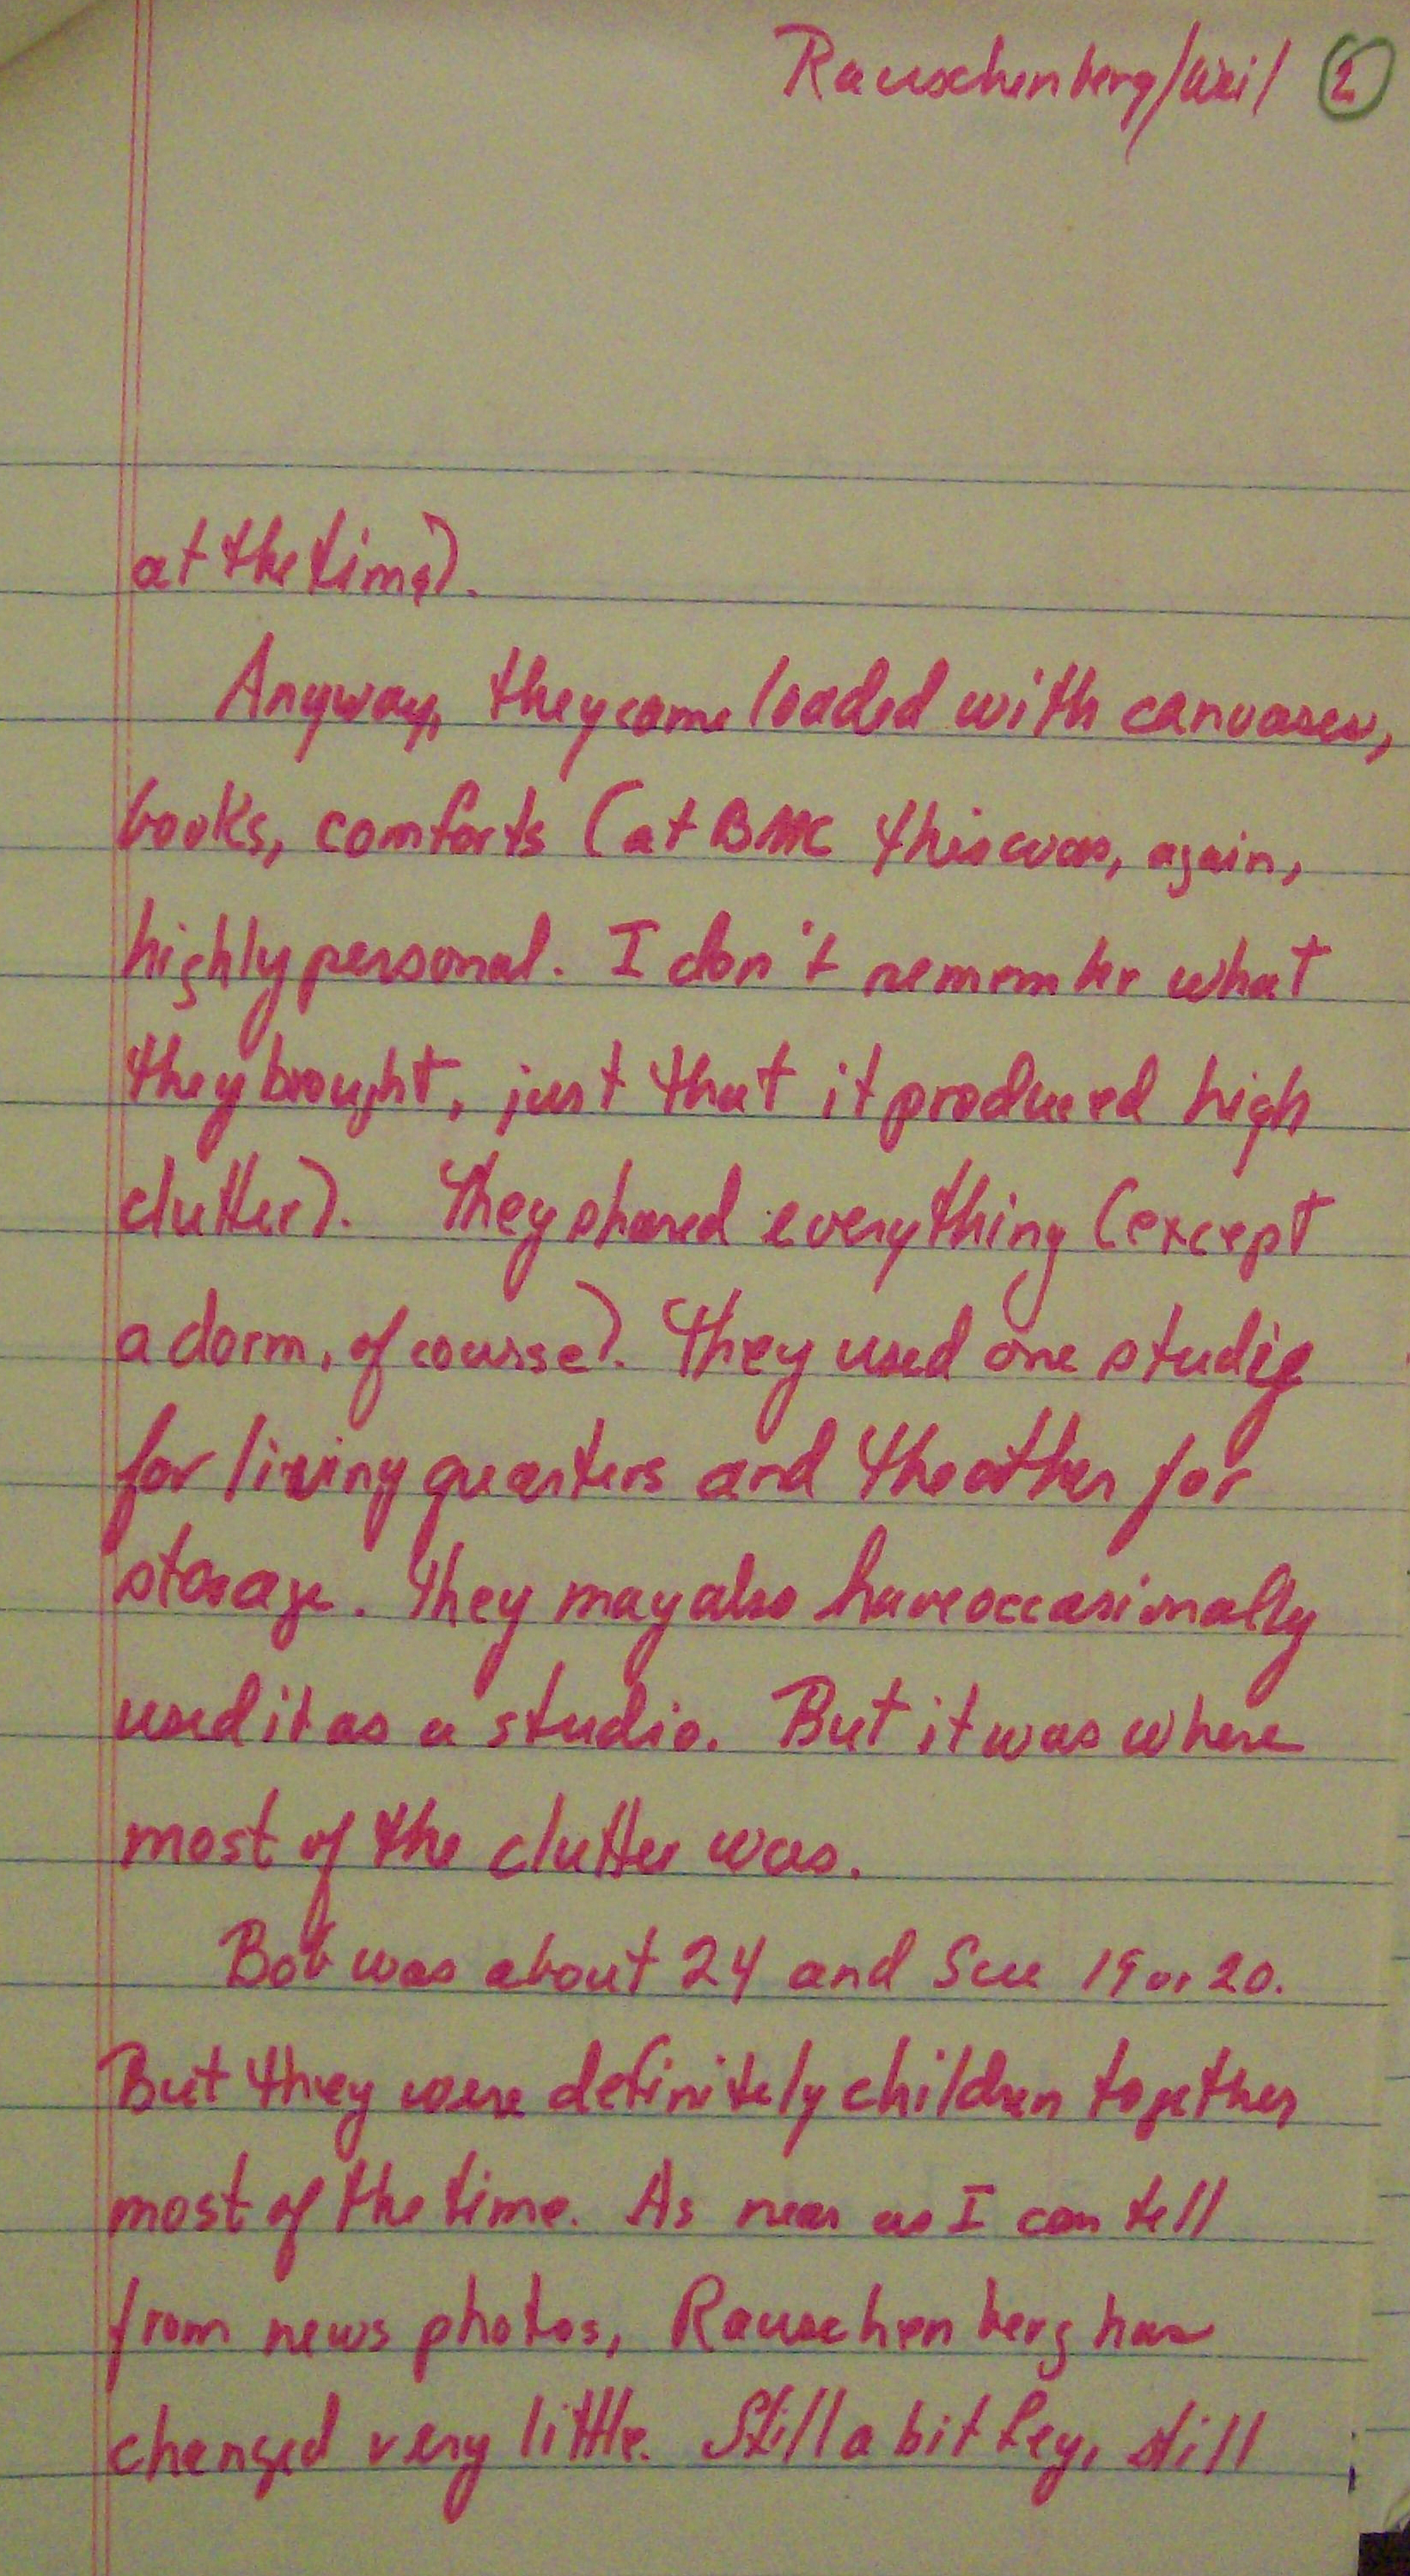 Rauschenberg/Weil 2
at the time).
Anyway, they come loaded with canvases,
books, comforts (at BMC this was, again,
highly personal. I don't remember what
they brought, just that it produced high
clutter). They shared everything (except
a dorm, of course). They used one studie
for living quarters and the other for
storage. They may also have occasionally
used it as a studio. But it was where
most of the clutter was.
Bob was about 24 and Sue 19 or 20.
But they were definitely children together
most of the time. As near as I can tell
from news photos, Rauschenberg has
changed very little. Still a bit fey, still